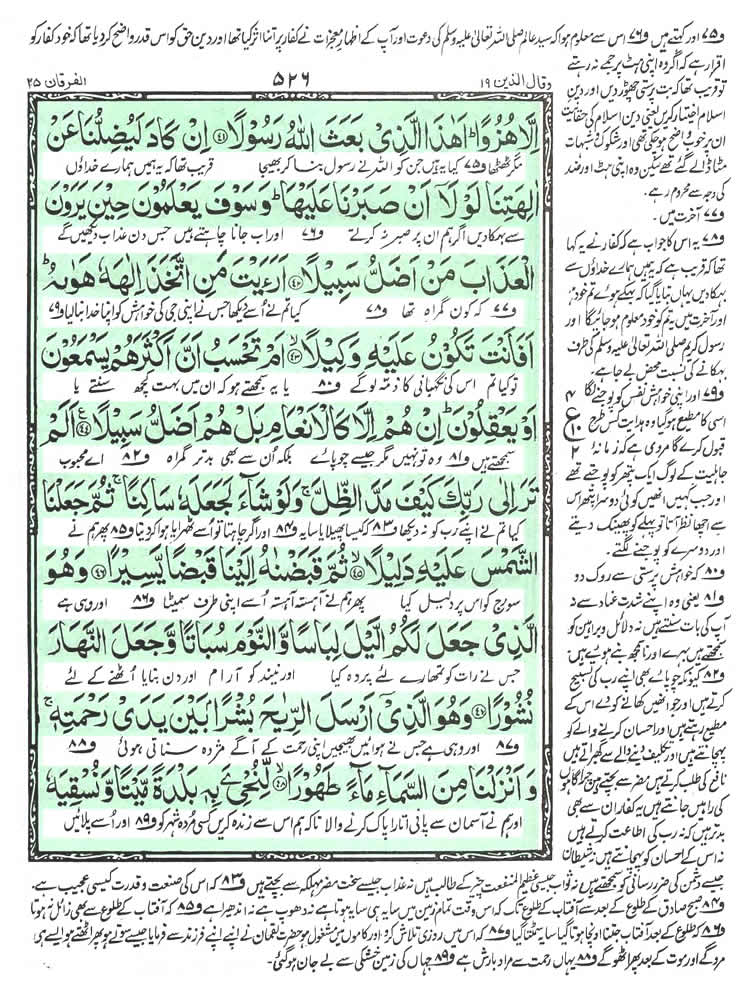 و۷۵ اور کہتے ہیں و۷۶ اس سے معلوم ہوا کہ سید عالم صلی اللہ تعالیٰ علیہ وسلم کی دعوت اور آپ کے اظہار معجزات نے کفار پر اتنا اثر کیا تھا اور دین حق کو اس قدر واضح کر دیا تھا کہ خود کفار کو
وقال الذین ۱۹
۵۲۶
الفرقان ۲۵
اِلَّا هُزُوًا ؕ اَهٰذَا الَّذِیْ بَعَثَ اللّٰهُ رَسُوْلًا ﴿۴۱﴾ اِنْ كَادَ لَیُضِلُّنَا عَنْ
مگر ٹھٹھا و۷۵ کیا یہ ہیں جن کو اللہ نے رسول بنا کر بھیجا قریب تھا کہ یہ ہمیں ہمارے خداؤں
اٰلِهَتِنَا لَوْ لَاۤ اَنْ صَبَرْنَا عَلَیْهَا ؕ وَ سَوْفَ یَعْلَمُوْنَ حِیْنَ یَرَوْنَ
سے بہکا دیں اگر ہم ان پر صبر نہ کرتے و۷۶ اور اب جانا چاہتے ہیں جس دن عذاب دیکھیں گے
الْعَذَابَ مَنْ اَضَلُّ سَبِیْلًا ﴿۴۲﴾ اَرَءَیْتَ مَنِ اتَّخَذَ اِلٰهَهٗ هَوٰىهُ ؕ
و۷۷ کہ کون گمراہ تھا و۷۸ کیا تم نے اُسے دیکھا جس نے اپنی جی کی خواہش کو اپنا خدا بنا لیا و۷۹
اَفَاَنْتَ تَكُوْنُ عَلَیْهِ وَكِیْلًا ﴿۴۳﴾ اَمْ تَحْسَبُ اَنَّ اَكْثَرَهُمْ یَسْمَعُوْنَ
تو کیا تم اس کی نگہبانی کا ذمہ لو گے و۸۰ یا یہ سمجھتے ہو کہ ان میں بہت کچھ سنتے یا
اَوْ یَعْقِلُوْنَ ؕ اِنْ هُمْ اِلَّا كَالْاَنْعَامِ بَلْ هُمْ اَضَلُّ سَبِیْلًا ﴿۴۴﴾ اَلَمْ
سمجھتے ہیں و۸۱ وہ تو نہیں مگر جیسے چوپائے بلکہ اُن سے بھی بدتر گمراہ و۸۲ اے محبوب
تَرَ اِلٰى رَبِّكَ كَیْفَ مَدَّ الظِّلَّ ۚ وَ لَوْ شَآءَ لَجَعَلَهٗ سَاكِنًا ۚ ثُمَّ جَعَلْنَا
کیا تم نے اپنے رب کو نہ دیکھا و۸۳ کیسا پھیلایا سایہ و۸۴ اور اگر چاہتا تو اُسے ٹھہرایا ہوا کر دیتا و۸۵ پھر ہم نے
الشَّمْسَ عَلَیْهِ دَلِیْلًا ﴿۴۵﴾ ثُمَّ قَبَضْنٰهُ اِلَیْنَا قَبْضًا یَّسِیْرًا ﴿۴۶﴾ وَ هُوَ
سورج کو اس پر دلیل کیا پھر ہم نے آہستہ آہستہ اُسے اپنی طرف سمیٹا و۸۶ اور وہی ہے
الَّذِیْ جَعَلَ لَكُمُ الَّیْلَ لِبَاسًا وَّ النَّوْمَ سُبَاتًا وَّ جَعَلَ النَّهَارَ
جس نے رات کو تمہارے لئے پردہ کیا اور نیند کو آرام اور دن بنایا اُٹھنے کے لئے
نُشُوْرًا ﴿۴۷﴾ وَ هُوَ الَّذِیْۤ اَرْسَلَ الرِّیٰحَ بُشْرًۢا بَیْنَ یَدَیْ رَحْمَتِهٖ ۚ
و۸۷ اور وہی ہے جس نے ہوائیں بھیجیں اپنی رحمت کے آگے مژدہ سناتی ہوئی و۸۸
وَ اَنْزَلْنَا مِنَ السَّمَآءِ مَآءً طَهُوْرًا ﴿۴۸﴾ لِّنُحْیَِۧ بِهٖ بَلْدَةً مَّیْتًا وَّ نُسْقِیَهٗ
اور ہم نے آسمان سے پانی اتارا پاک کرنے والا تاکہ ہم اس سے زندہ کریں کسی مردہ شہر کو و۸۹ اور اُسے پلائیں
ع
۴
۱۰
۲
اقرار ہے کہ اگر وہ اپنی ہٹ پر جمے نہ رہتے
تو قریب تھا کہ بت پرستی چھوڑ دیں اور دین
اسلام اختیار کریں یعنی دین اسلام کی حقانیت
ان پر خوب واضح ہو چکی تھی اور شکوک و شبہات
مٹا ڈالے گئے تھے لیکن وہ اپنی ہٹ اور ضد
کی وجہ سے محروم رہے۔
و۷۷ آخرت میں۔
و۷۸ یہ اس کا جواب ہے کہ کفار نے یہ کہا
تھا کہ قریب ہے کہ یہ ہمیں ہمارے خداؤں سے
بہکا دیں یہاں بتایا گیا کہ بہکے ہوئے تم خود ہو
اور آخرت میں یہ تم کو خود معلوم ہو جائے گا اور
رسول کریم صلی اللہ تعالیٰ علیہ وسلم کی طرف
بہکانے کی نسبت محض بے جا ہے۔
و۷۹ اور اپنی خواہش نفس کو پوجنے لگا
اسی کا مطیع ہو گیا وہ ہدایت کس طرح
قبول کرے گا مروی ہے کہ زمانۂ
جاہلیت کے لوگ ایک پتھر کو پوجتے تھے
اور جب کہیں انھیں کوئی دوسرا پتھر اس
سے اچھا نظر آتا تو پہلے کو پھینک دیتے
اور دوسرے کو پوجنے لگتے۔
و۸۰ کہ خواہش پرستی سے روک دو
و۸۱ یعنی وہ اپنے شدت عناد سے نہ
آپ کی بات سنتے ہیں نہ دلائل و براہین کو
سمجھتے ہیں بہرے اور ناسمجھ بنے ہوئے ہیں
و۸۲ کیونکہ چوپائے بھی اپنے رب کی تسبیح
کرتے ہیں اور جو انھیں کھانے کو دے اس کے
مطیع رہتے ہیں اور احسان کرنے والے کو
پہچانتے ہیں اور تکلیف دینے والے سے گھبراتے ہیں
نافع کی طلب کرتے ہیں مضر سے بچتے ہیں چراگاہوں
کی راہیں جانتے ہیں یہ کفار ان سے بھی
بدتر ہیں کہ نہ رب کی اطاعت کرتے ہیں
نہ اس کے احسان کو پہچانتے ہیں نہ شیطان
جیسے دشمن کی ضرر رسانی کو سمجھتے ہیں نہ ثواب جیسی عظیم المنفعت چیز کے طالب ہیں نہ عذاب جیسے سخت مضر مہلکہ سے بچتے ہیں و۸۳ کہ اس کی صنعت و قدرت کیسی عجیب ہے۔
و۸۴ صبح صادق کے طلوع کے بعد سے آفتاب کے طلوع تک کہ اس وقت تمام زمین میں سایہ ہی سایہ ہوتا ہے نہ دھوپ ہے نہ اندھیرا ہے و۸۵ کہ آفتاب کے طلوع سے بھی زائل نہ ہوتا
و۸۶ کہ طلوع کے بعد آفتاب جتنا اونچا ہوتا گیا سایہ سمٹتا گیا و۸۷ کہ اس میں روزی تلاش کرو اور کاموں میں مشغول ہو حضرت لقمان نے اپنے فرزند سے فرمایا جیسے سوتے ہو پھر اٹھتے ہو ایسے ہی
مرو گے اور موت کے بعد پھر اٹھو گے و۸۸ یہاں رحمت سے مراد بارش ہے و۸۹ جہاں کی زمین خشکی سے بے جان ہو گئی۔